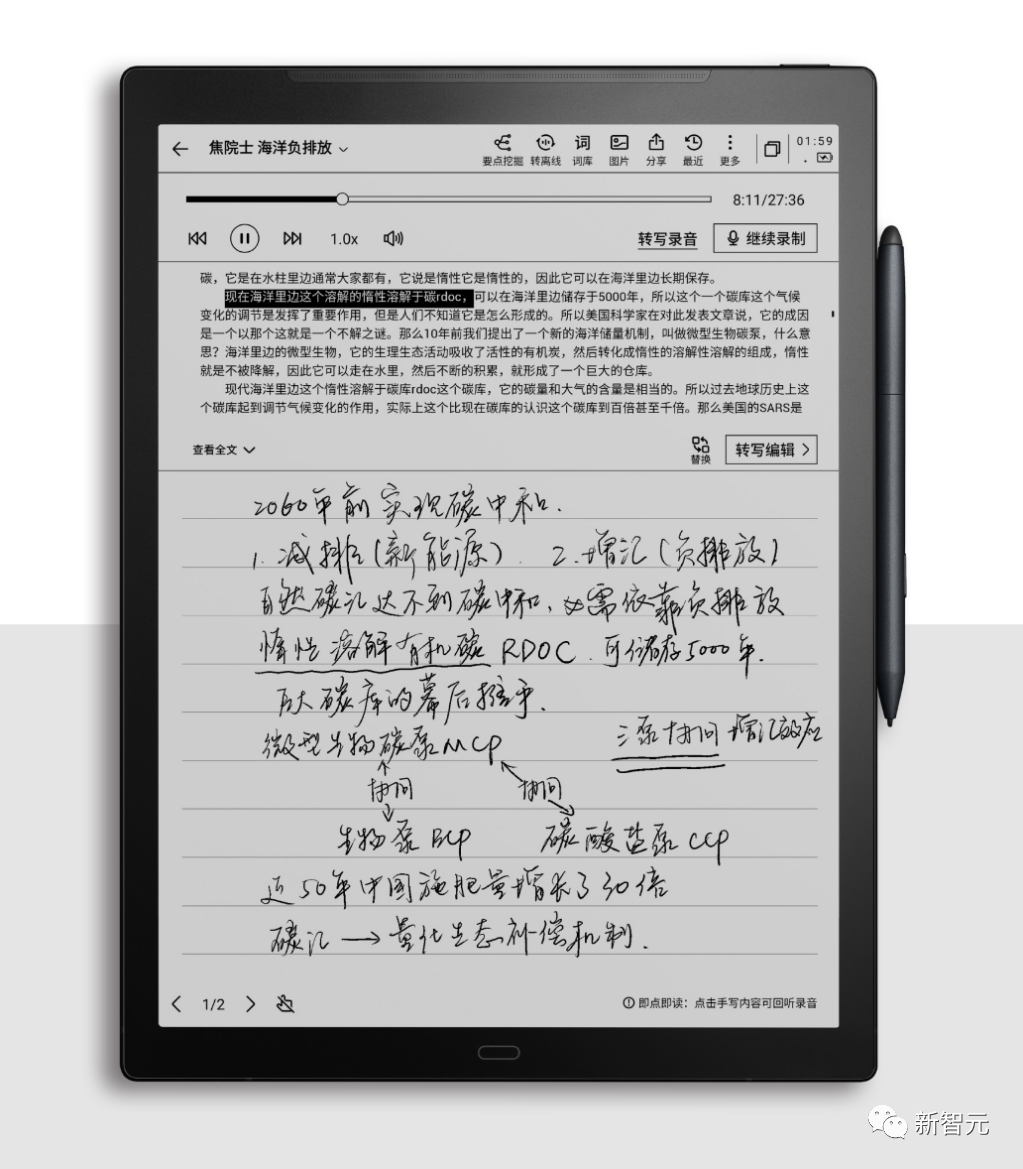 焦院士 海洋负排放
要点挖掘 转离线 词库 图片 分享 最近 更多
01:59
8:11/27:36
1.0x 转写录音 继续录制
碳，它是在水柱里边通常大家都有，它说是惰性它是惰性的，因此它可以在海洋里边长期保存。
现在海洋里边这个溶解的惰性溶解于碳rdoc，可以在海洋里边储存于5000年，所以这个一个碳库这个气候
变化的调节是发挥了重要作用，但是人们不知道它是怎么形成的。所以美国科学家在对此发表文章说，它的成因
是一个以那个这就是一个不解之谜。那么10年前我们提出了一个新的海洋储量机制，叫做微型生物碳泵，什么意
思？海洋里边的微型生物，它的生理生态活动吸收了活性的有机炭，然后转化成惰性的溶解性溶解的组成，惰性
就是不被降解，因此它可以走在水里，然后不断的积累，就形成了一个巨大的仓库。
现代海洋里边这个惰性溶解于碳库rdoc这个碳库，它的碳量和大气的含量是相当的。所以过去地球历史上这
个碳库起到调节气候变化的作用，实际上这个比现在碳库的认识这个碳库到百倍甚至千倍。那么美国的SARS是
查看全文 替换 转写编辑
2060年前实现碳中和.
1. 减排（新能源） 2. 增汇（负排放）
自然碳汇达不到碳中和、必需依靠负排放
惰性溶解有机碳 RDOC. 可储存5000年.
巨大碳库的幕后推手.
微型生物碳泵MCP 三泵协同增汇效应
协同 协同
生物泵 BCP 碳酸盐泵 CCP
近50年中国施肥量增长了30倍
碳汇 → 量化生态补偿机制.
1/2 即点即读：点击手写内容可回听录音
新智元